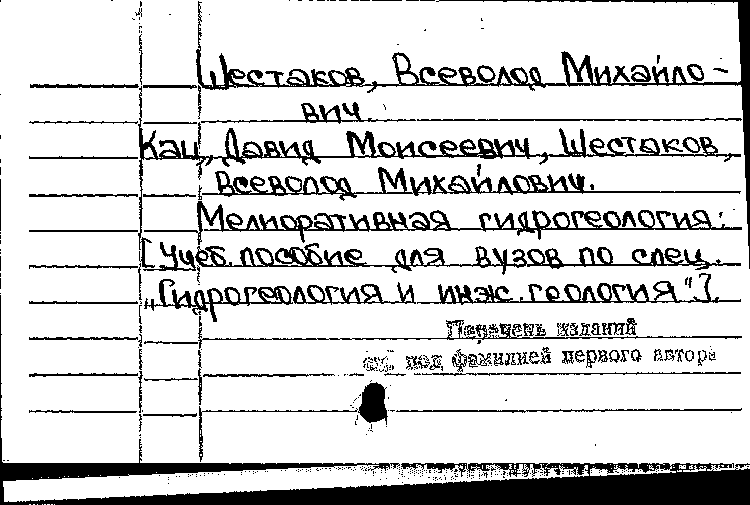 Шестаков, Всеволод Михайло-
вич.
Кац, Давид Моисеевич, Шестаков,
Всеволод Михайлович.
Мелиоративная гидрогеология:
[Учеб. пособие для вузов по спец.
„Гидрогеология и инж. геология"].
Перечень изданий
см. под фамилией первого автора